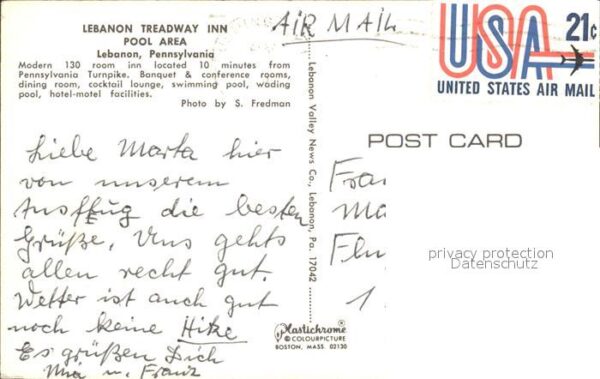 LEBANON TREADWAY INN
POOL AREA
Lebanon, Pennsylvania
Modern 130 room inn located 10 minutes from
Pennsylvania Turnpike. Banquet & conference rooms,
dining room, cocktail lounge, swimming pool, wading
pool, hotel-motel facilities.
Photo by S. Fredman
AIR MAIL
USA 21c
UNITED STATES AIR MAIL
Lebanon Valley News Co., Lebanon, Pa. 17042
POST CARD
Liebe Marta hier
von unserem
Ausflug die besten
Grüße, Uns gehts
allen recht gut.
Wetter ist auch gut
noch keine Hitze
Es grüßen Dich
Mia u. Franz
Frau
Ma
Flu
1
privacy protection
Datenschutz
Plastichrome®
© COLOURPICTURE
BOSTON, MASS. 02130